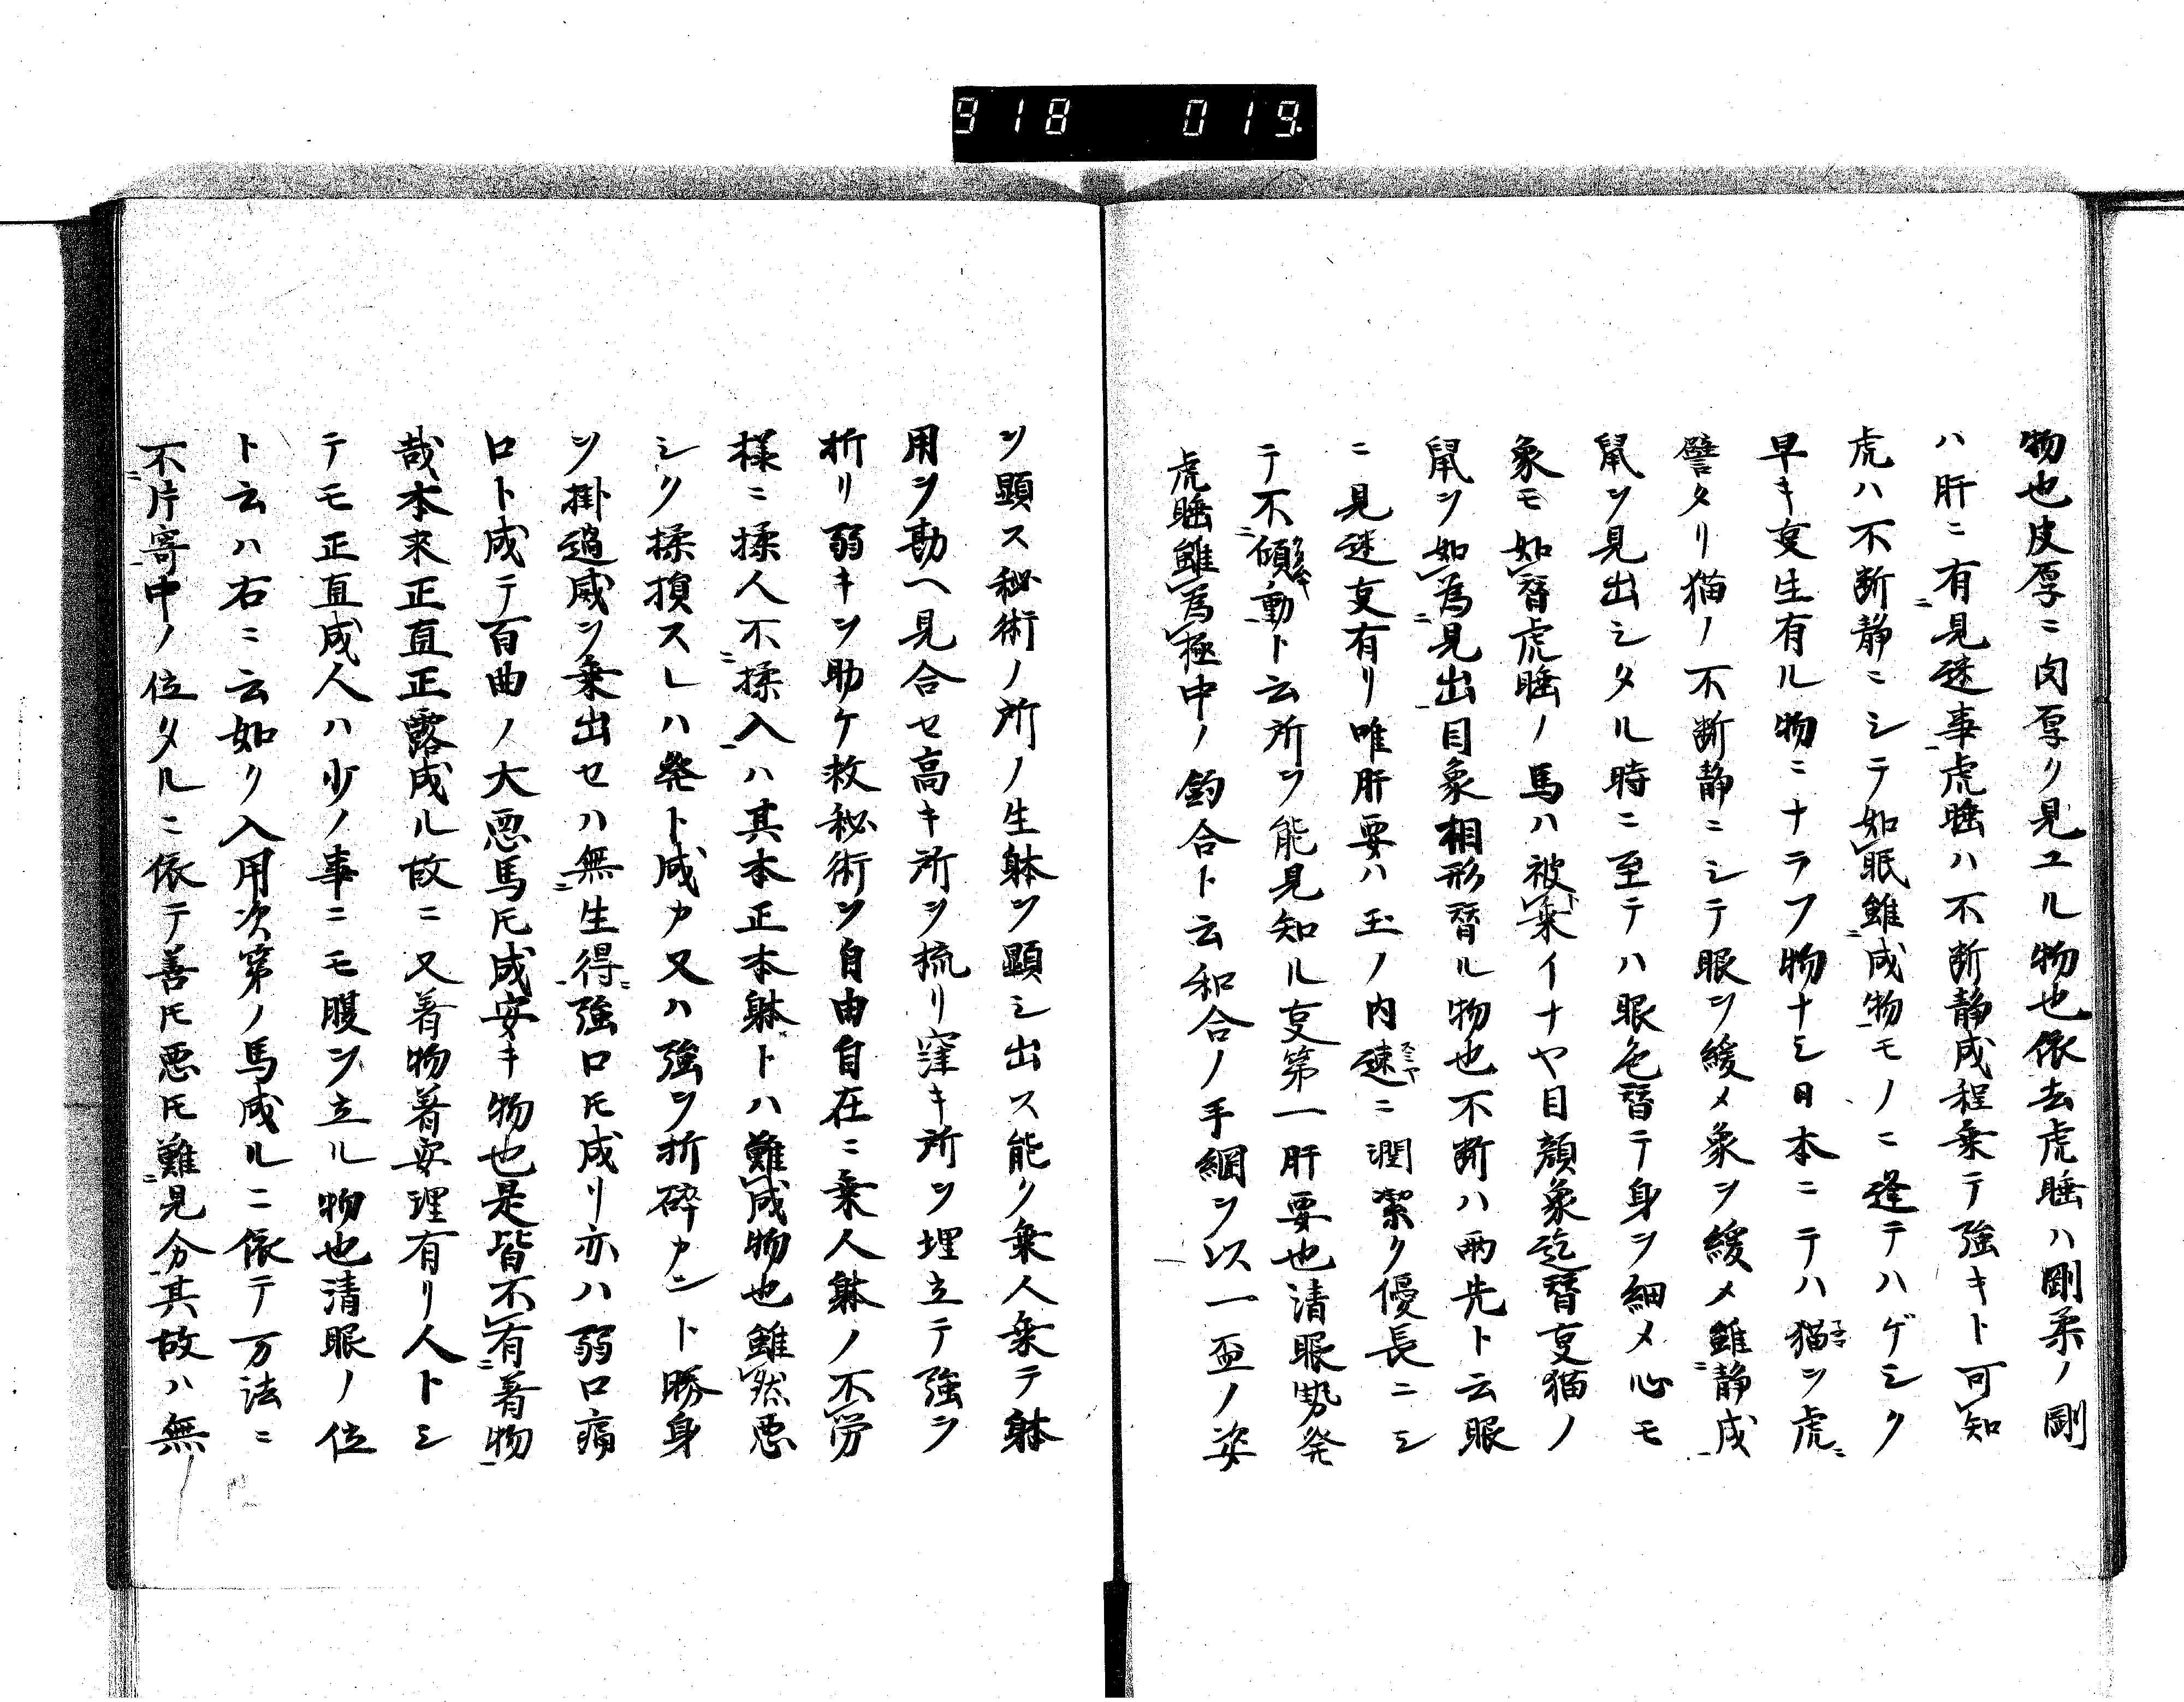 918 019
物也皮厚ニ肉厚ク見ユル物也依去虎睡ハ剛柔ノ剛
ハ肝ニ有見迷事虎睡ハ不断静成程乗テ強キト可知
虎ハ不断静ニシテ如眠雖成物モノニ逢テハゲシク
早キ叓生有ル物ニナラフ物ナシ日本ニテハ猫ヲ虎ニ
譬タリ猫ノ不断静ニシテ眼ヲ緩メ象ヲ緩メ雖静成
鼠ヲ見出シタル時ニ至テハ眼色替テ身ヲ細メ心モ
象モ如替虎睡ノ馬ハ被乗イナヤ目顔象迄替叓猫ノ
鼠ヲ如為見出目象相形替ル物也不断ハ両先ト云眼
ニ見迷叓有リ唯肝要ハ玉ノ内速ニ潤潔ク優長ニシ
テ不傾動ト云所ヲ能見知ル叓第一肝要也清眼勢発
虎睡雖為極中ノ釣合ト云和合ノ手綱ヲ以一盃ノ姿
ヲ顕ス秘術ノ所ノ生躰ヲ顕シ出ス能ク乗人乗テ躰
用ヲ勘ヘ見合セ高キ所ヲ梳リ窪キ所ヲ埋立テ強ヲ
折リ弱キヲ助ケ救秘術ヲ自由自在ニ乗人躰ノ不労
様ニ揉人不揉入ハ其本正本躰トハ難成物也雖然悪
シク揉損スレハ発ト成カ又ハ強ヲ折砕カント勝身
ヲ掛過威ヲ乗出セハ無生得強口𪜈成リ亦ハ弱口痛
口ト成テ百曲ノ大悪馬𪜈成安キ物也是皆不有着物
哉本来正直正露成ル故ニ又着物着安理有リ人トシ
テモ正直成人ハ少ノ事ニモ腹ヲ立ル物也清眼ノ位
ト云ハ右ニ云如ク入用次第ノ馬成ルニ依テ万法ニ
不片寄中ノ位タルニ依テ善𪜈悪𪜈難見分其故ハ無